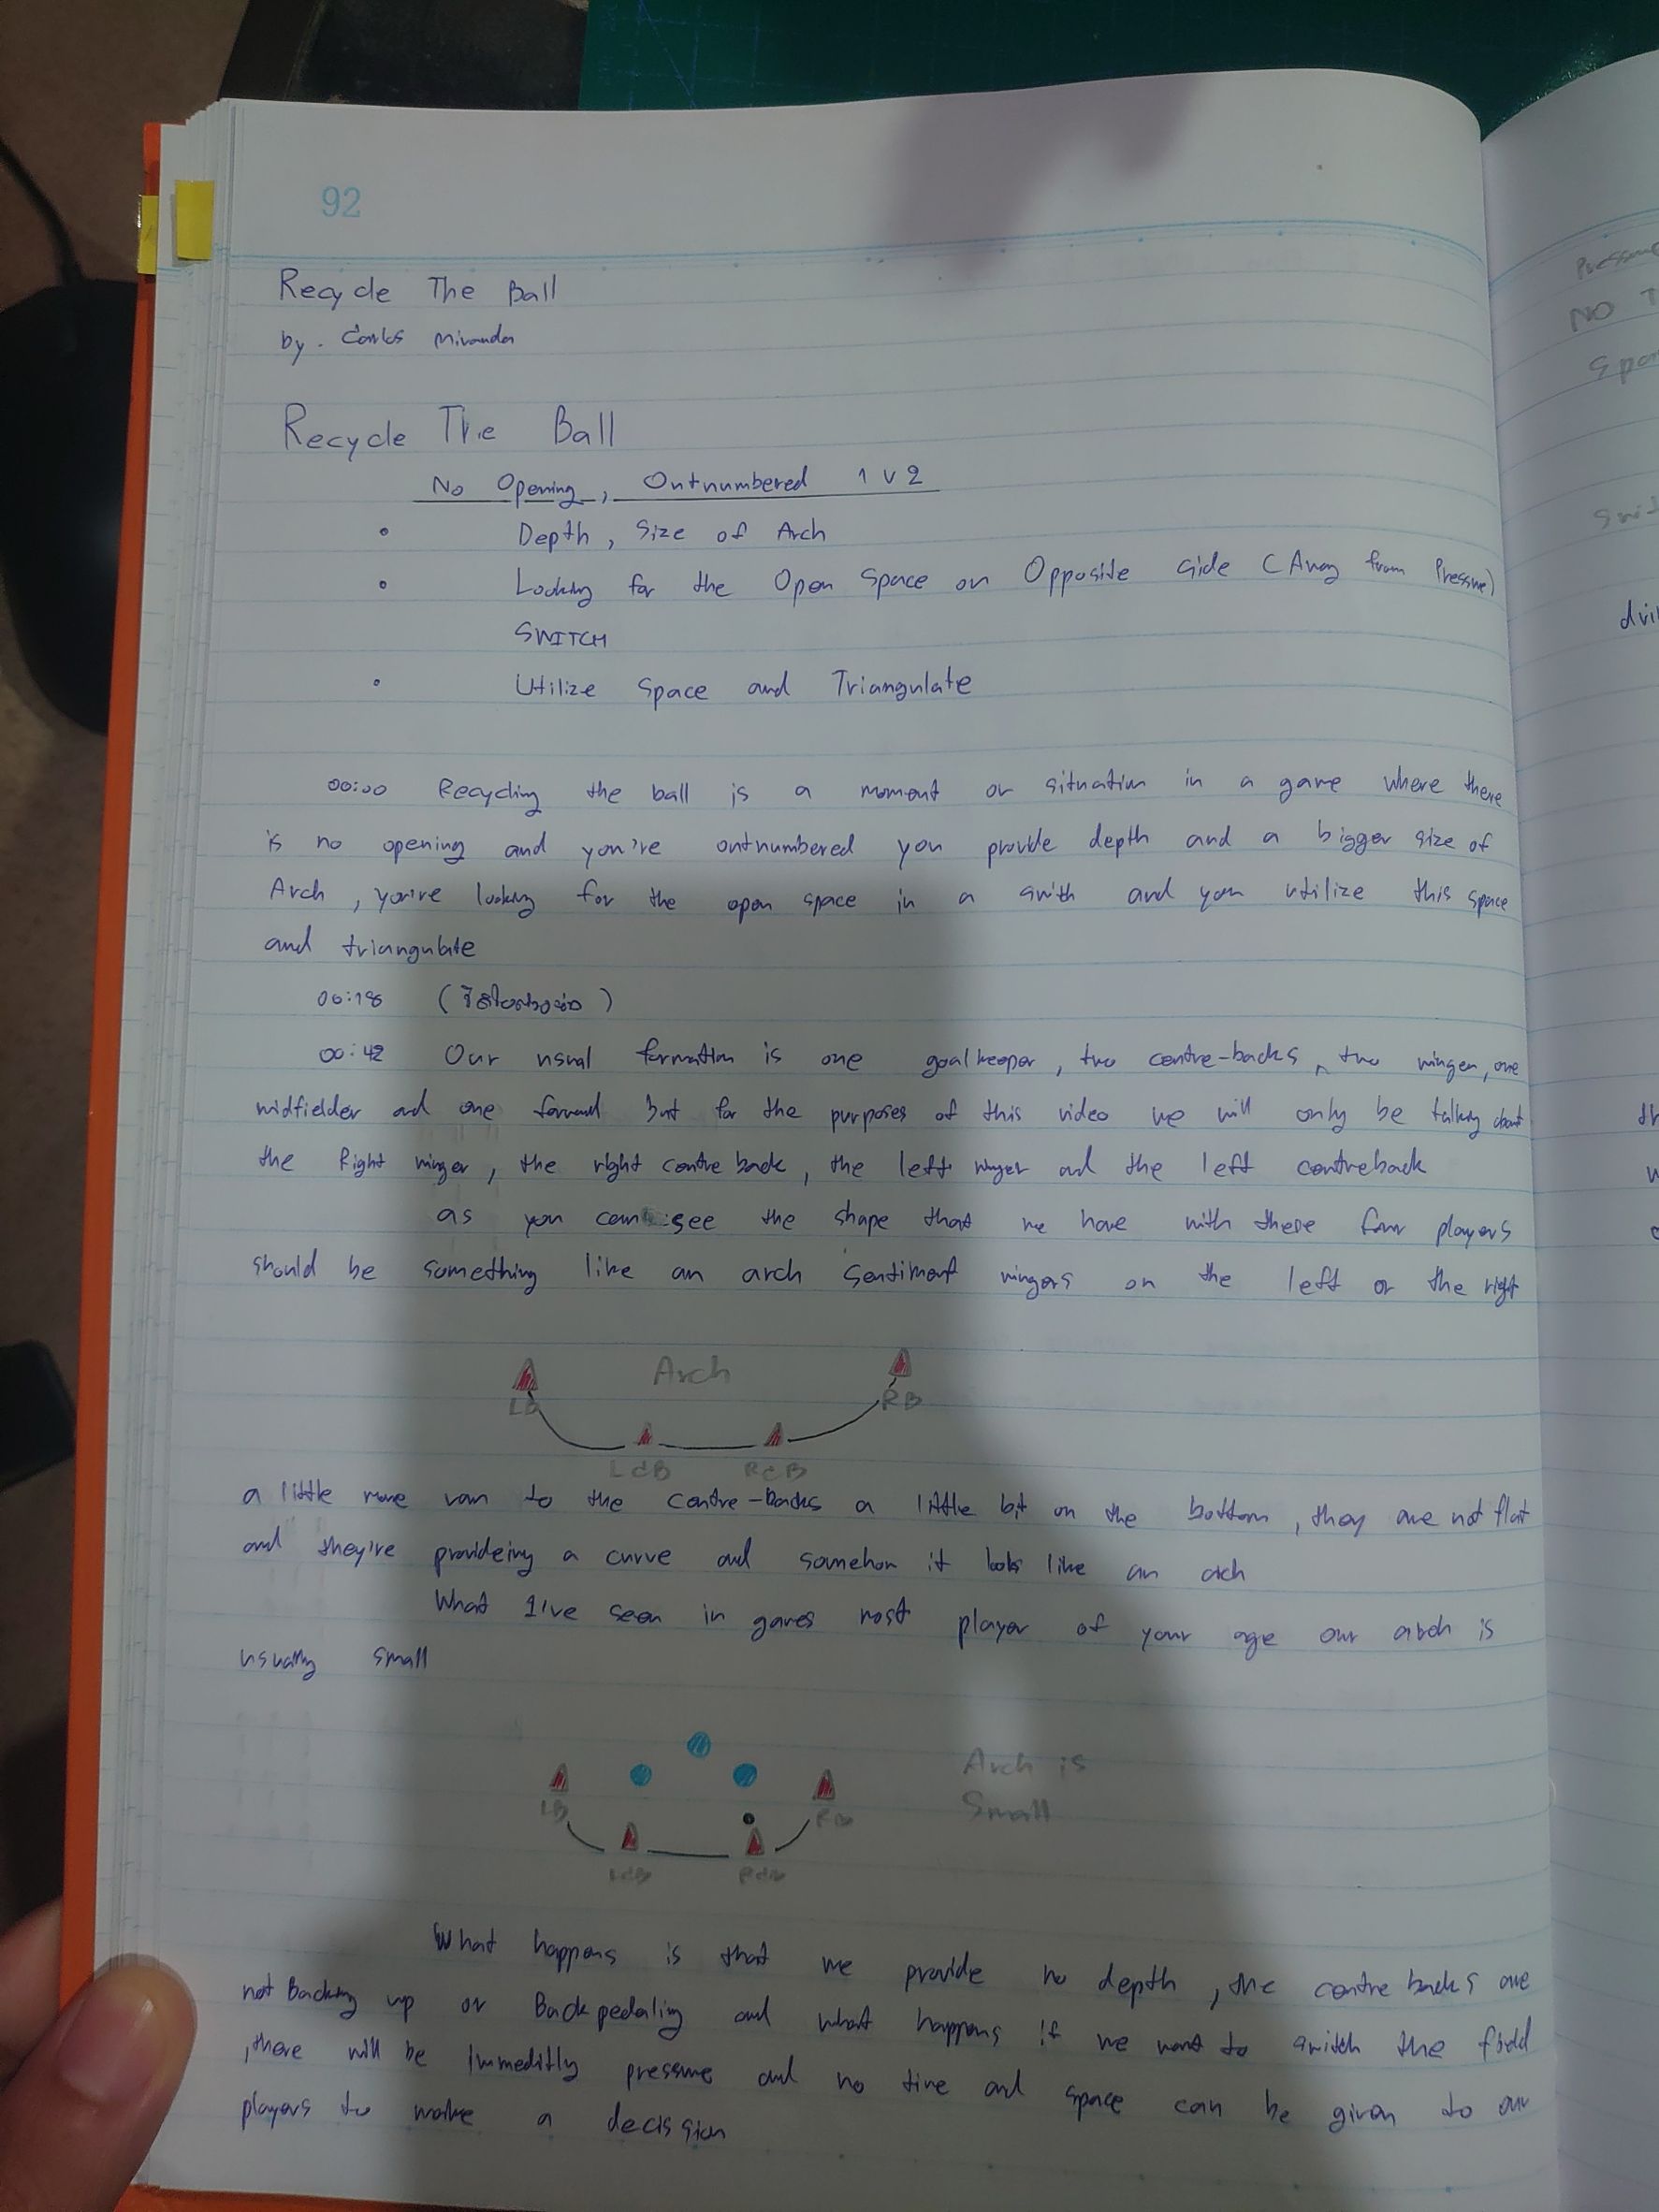 92
Recycle The Ball
by. Carlos Miranda
Recycle The Ball
No Opening, Outnumbered 1 v 2
• Depth, Size of Arch
• Looking for the Open Space on Opposite Side (Away from Pressure)
SWITCH
• Utilize Space and Triangulate
00:00 Recycling the ball is a moment or situation in a game where there
is no opening and you're outnumbered you provide depth and a bigger size of
Arch, you're looking for the open space in a swith and you utilize this space
and triangulate
00:18
00:42 Our usual formation is one goalkeeper, two centre-backs, two winger, one
midfielder and one forward but for the purposes of this video we will only be talking about
the Right winger, the right centre back, the left winger and the left centreback
as you can see the shape that we have with these four players
should be something like an arch sentiment wingers on the left or the right
Arch
LB RB
LCB RCB
a little more van to the centre-backs a little bit on the bottom, they are not flat
and they're provideing a curve and somehow it looks like an arch
What I've seen in games most player of your age our arch is
usually small
Arch is
Small
LB RB
LCB RCB
What happens is that we provide no depth, the centre backs are
not Backing up or Backpedaling and what happens if we want to switch the field
, there will be immeditly pressure and no time and space can be given to our
players to make a decision
Pressure
NO